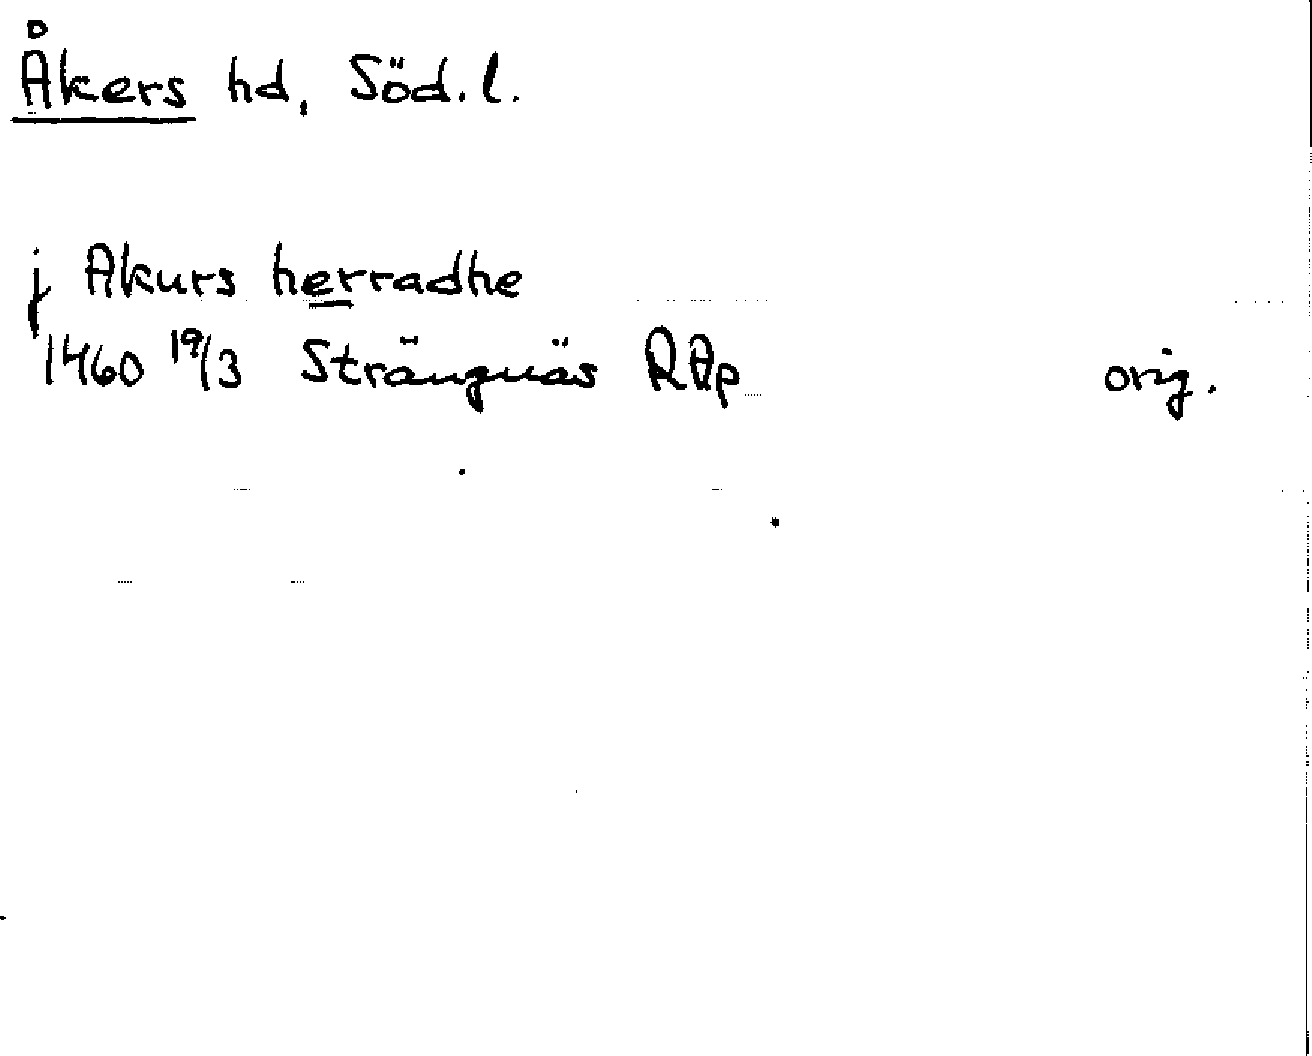 Åkers hd, Söd. l.
j Akurs herradhe
1460 19/3 Strängnäs RAp orig.